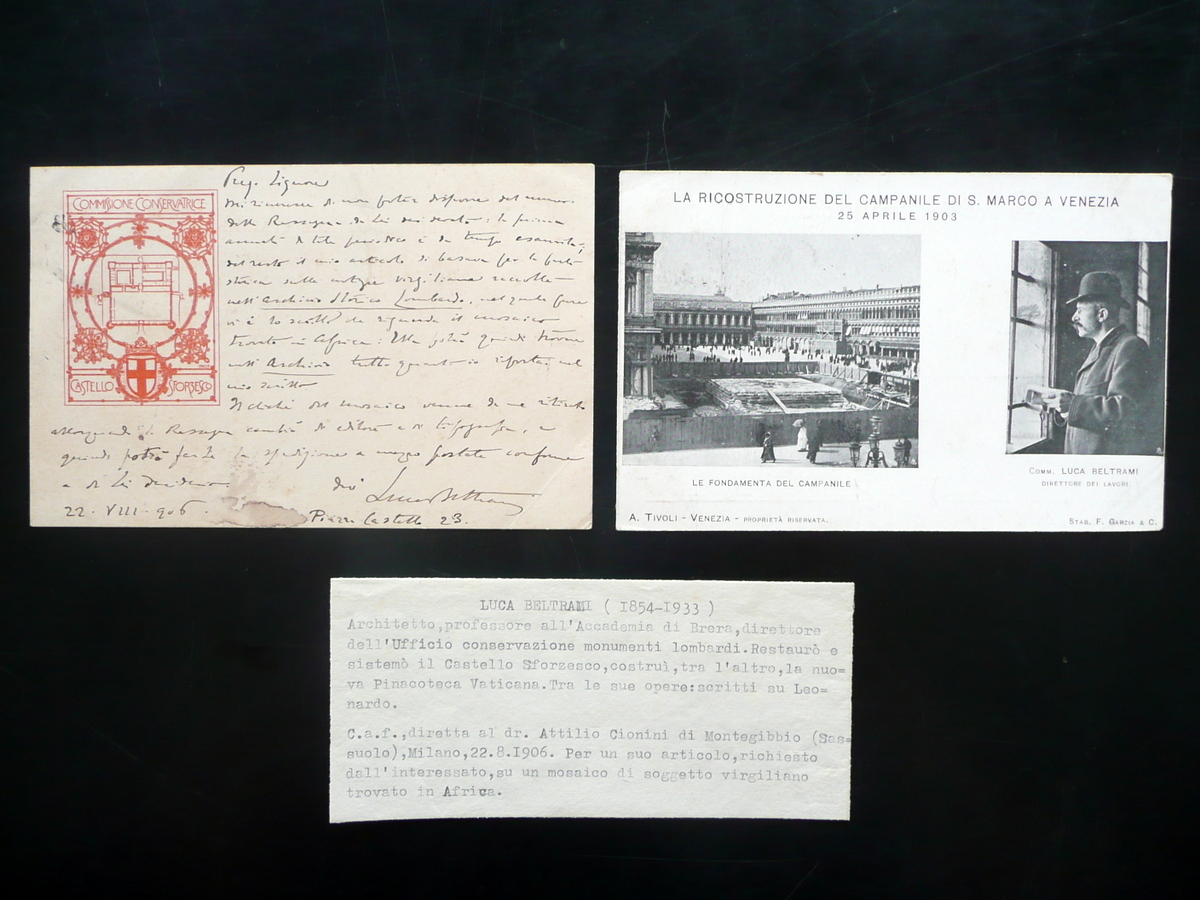 COMMISSIONE CONSERVATRICE
CASTELLO SFORZESCO
Preg. Signore
Mi rincresce di non poter disporre del numero
della Rassegna da Lei desiderato: la prima
annata di tale periodico è da tempo esaurita,
del resto il mio articolo si basava per la parte
storica sulle notizie virgiliane raccolte
nell'Archivio Storico Lombardo, nel quale pure
vi è lo scritto che riguarda il mosaico
trovato in Africa: Ella potrà quindi trovare
nell'Archivio tutto quanto io riportai nel
mio scritto
Il cliché del mosaico venne da me ritirato
allorquando la Rassegna cambiò di editore e di tipografia, e
quindi potrò farle la spedizione a mezzo postale conforme
a di Lei desiderio.
dev Luca Beltrami
22. VIII. 906.
Piazza Castello 23.
LA RICOSTRUZIONE DEL CAMPANILE DI S. MARCO A VENEZIA
25 APRILE 1903
LE FONDAMENTA DEL CAMPANILE
COMM. LUCA BELTRAMI
DIRETTORE DEI LAVORI
A. TIVOLI - VENEZIA - PROPRIETÀ RISERVATA.
STAB. F. GARZIA & C.
LUCA BELTRAMI ( I854-I933 )
Architetto,professore all'Accademia di Brera,direttore
dell'Ufficio conservazione monumenti lombardi.Restaurò e
sistemò il Castello Sforzesco,costruì,tra l'altro,la nuo=
va Pinacoteca Vaticana.Tra le sue opere:scritti su Leo=
nardo.
C.a.f.,diretta al dr. Attilio Cionini di Montegibbio (Sas=
suolo),Milano,22.8.I906. Per un suo articolo,richiesto
dall'interessato,su un mosaico di soggetto virgiliano
trovato in Africa.